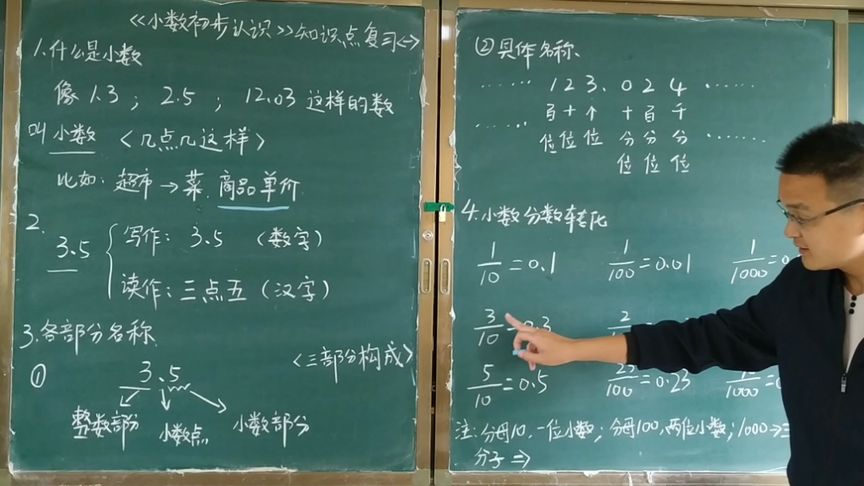 《小数初步认识》知识点复习
1.什么是小数
像1.3；2.5；12.03这样的数
叫小数 <几点几这样>
比如：超市→菜.商品单价
2.
3.5 { 写作：3.5 （数字）
读作：三点五（汉字）
3.各部分名称
<三部分构成>
① 3.5
整数部分 小数点 小数部分
②具体名称
…… 1 2 3 . 0 2 4 ……
…… 百 十 个 十 百 千
位 位 位 分 分 分 ……
位 位 位
4.小数分数转化
1/10=0.1 1/100=0.01 1/1000=0
3/10=0.3 2
5/10=0.5 23/100=0.23
注：分母10，一位小数；分母100，两位小数；1000→三
分子⇒